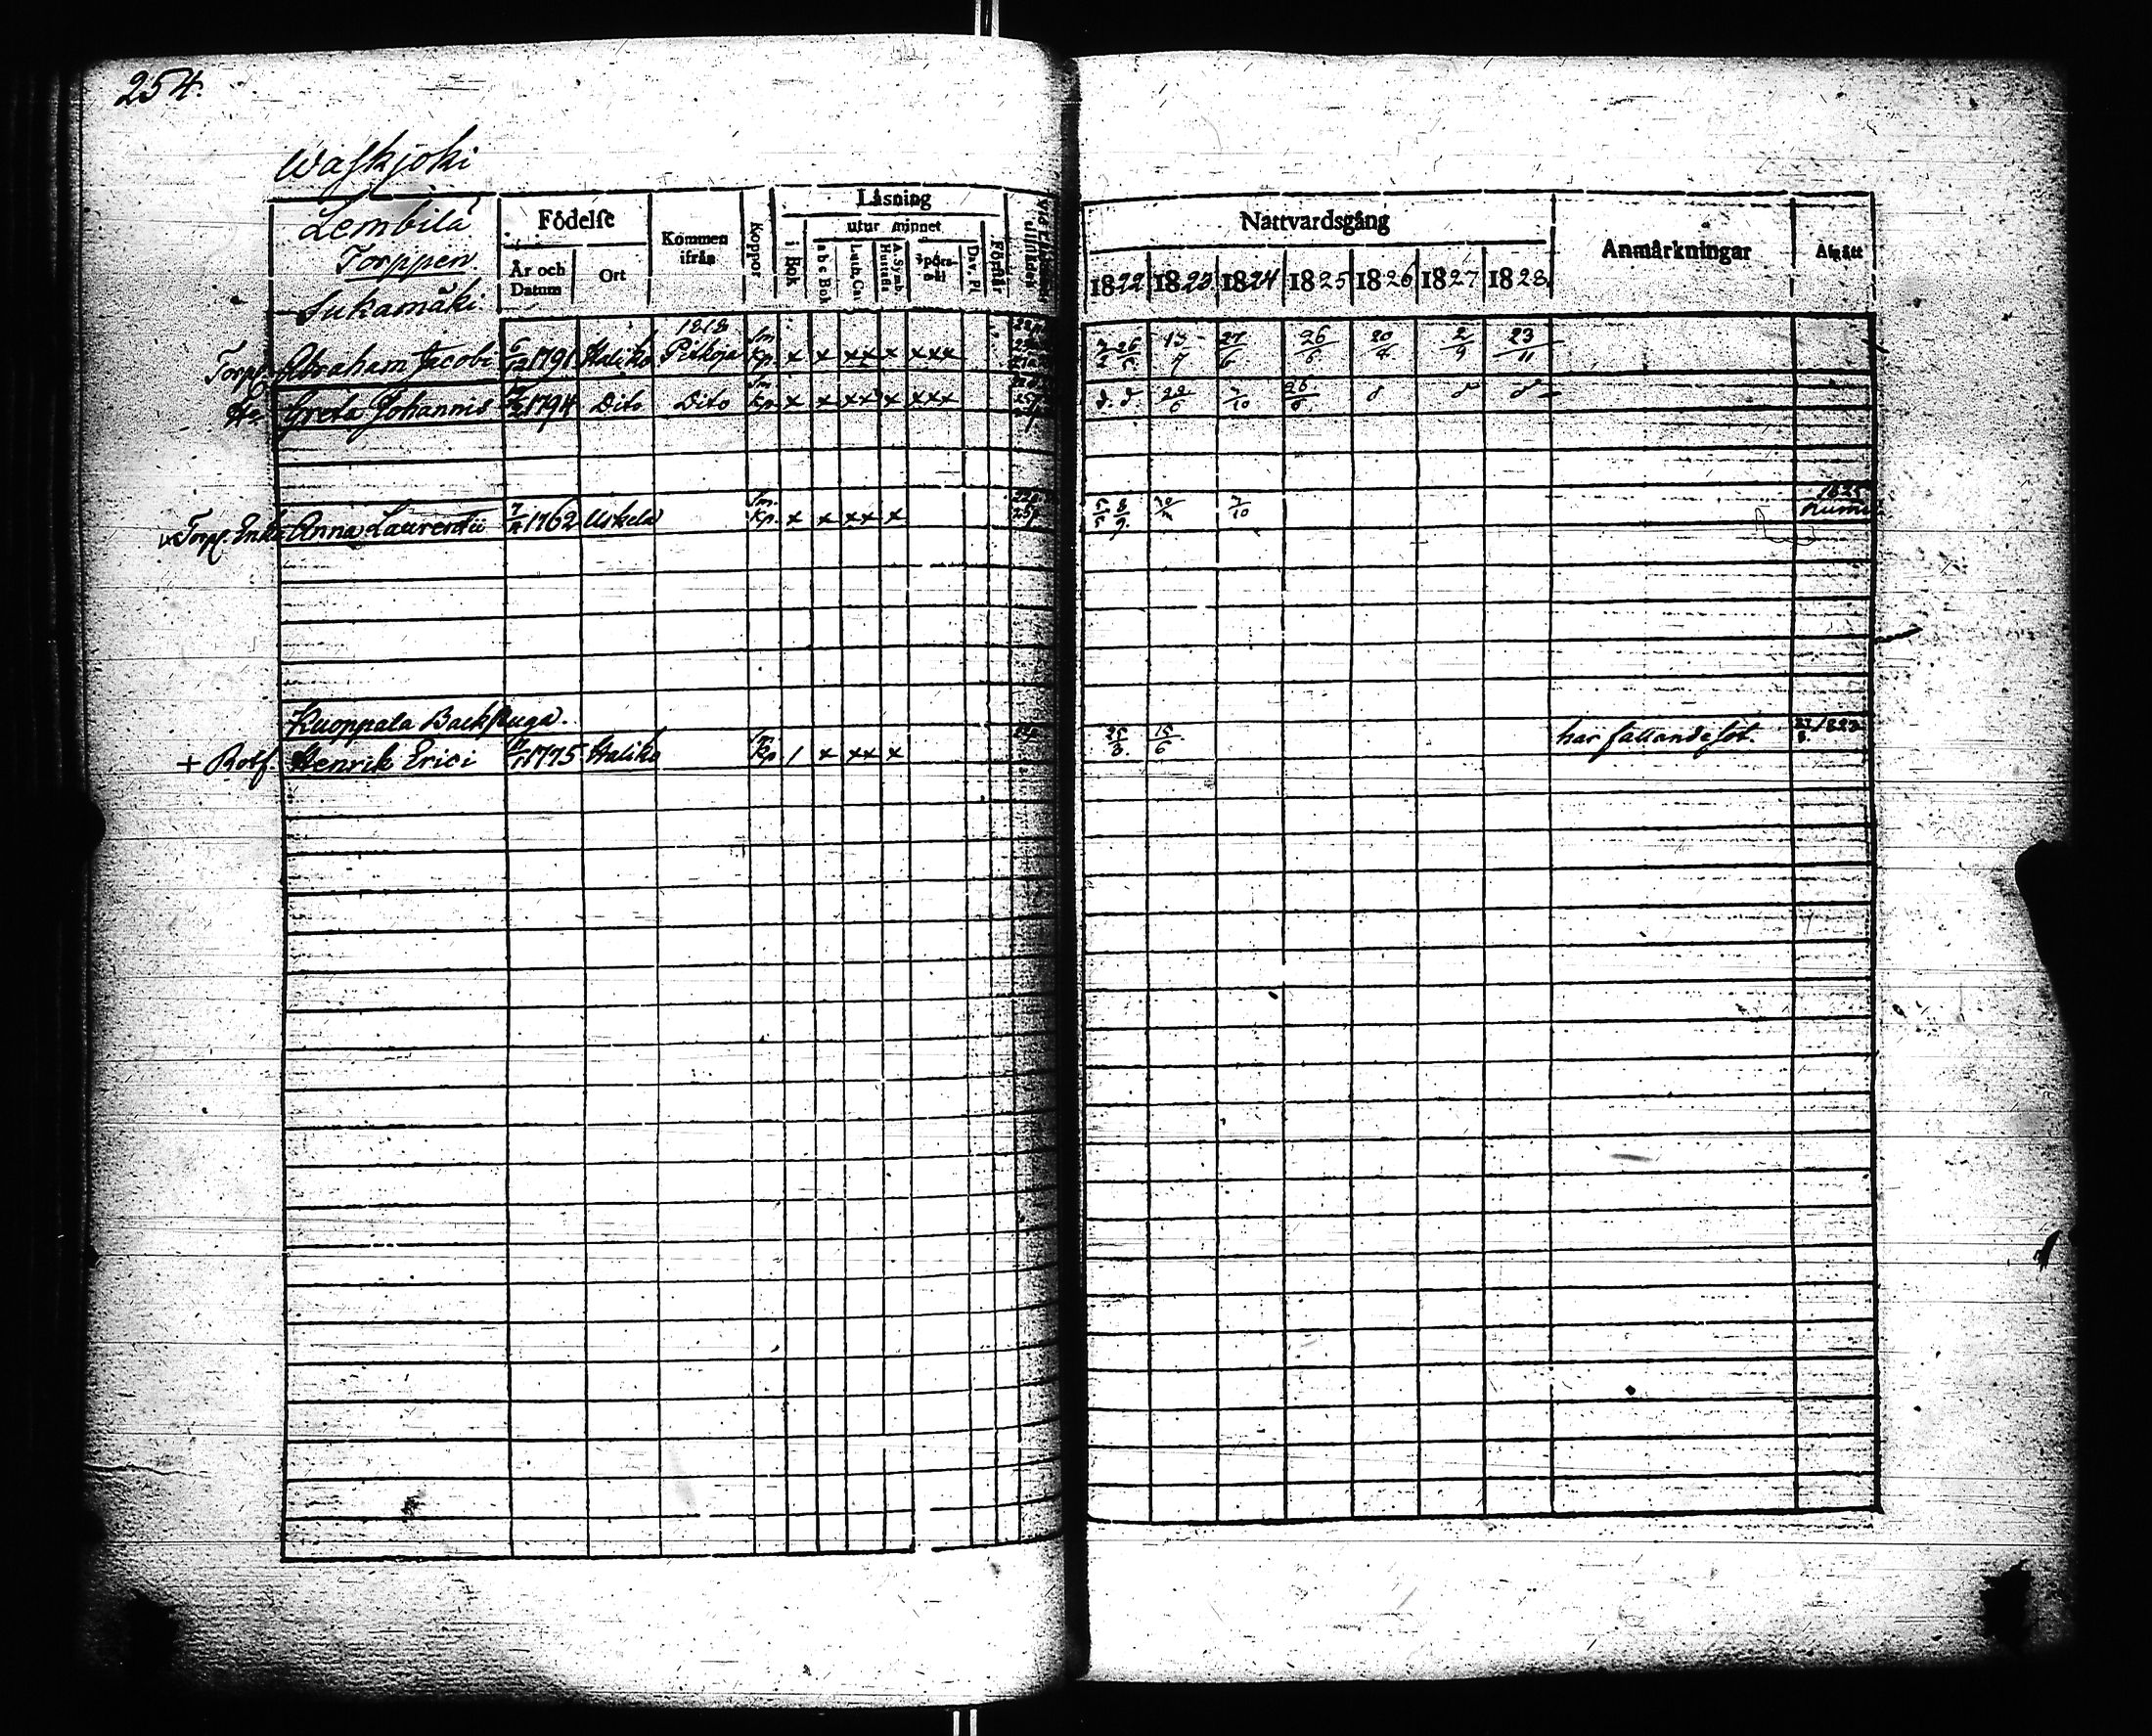 254.
Waskjoki
Lembilä
Torppen
Sukamäki
Födelse
År och Datum
Ort
Kommen ifrån
Koppor
Läsning
i Bok
utur minnet
a b c Bok
Luth. Cat.
A. Symb. Hustafla
Spörsmål
Dav. Ps.
Förstår
Nattvardsgång
1822 1823 1824 1825 1826 1827 1828
Anmärkningar
Afgått
1818
Torp. Abraham Jacobi 1791 Haliko Pitkoja Sm Kp. x x xx x xxx 13/7 27/6 26/6 20/4 2/9 23/11
Hu Greta Johannis 1794 Dito Dito Sm Kp. x x xx x xxx d. d 22/6 7/10 26/6 d d d
Torp. Enka Anna Laurentii 1762 Uskela Sm Kp. x x xx x 7/10
Kuoppala Backstuga.
+ Rotf. Henrik Erici 1775 Haliko Sm Kp 1 x xx x 15/6 har fallandesot.